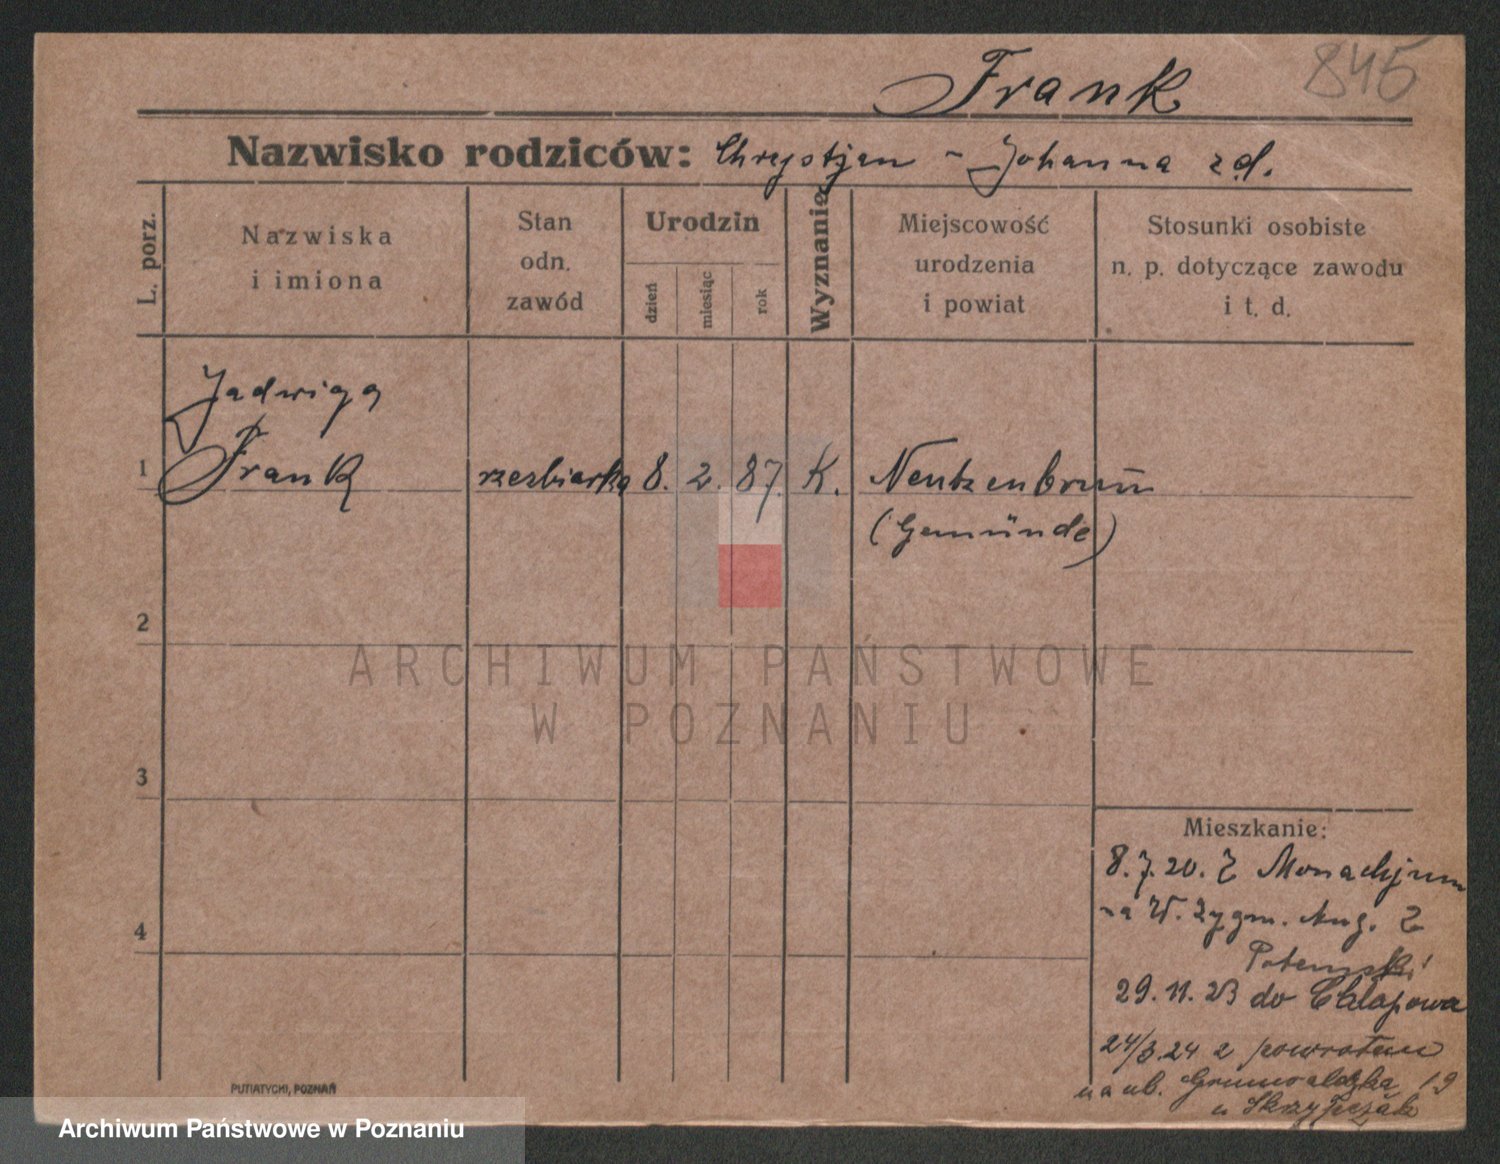 Frank 845
Nazwisko rodziców: Chrystjan - Johanna zd.
L. porz.
Nazwiska
i imiona
Stan
odn.
zawód
Urodzin
dzień
miesiąc
rok
Wyznanie
Miejscowość
urodzenia
i powiat
Stosunki osobiste
n. p. dotyczące zawodu
i t. d.
Jadwiga
1 Frank rzezbiarka 8. 2. 87. K. Neutzenbrunn
(Gemünde)
2
ARCHIWUM PAŃSTWOWE
W POZNANIU
3
Mieszkanie:
8.7.20. Z Monachjum
na W. Zygm. Aug. 2
4
Potemski
29.11.23 do Chlapowa
24/3.24 z powrotem
na ul. Grunwaldzka 19
u Skrzypczak
PUTIATYCKI, POZNAŃ
Archiwum Państwowe w Poznaniu